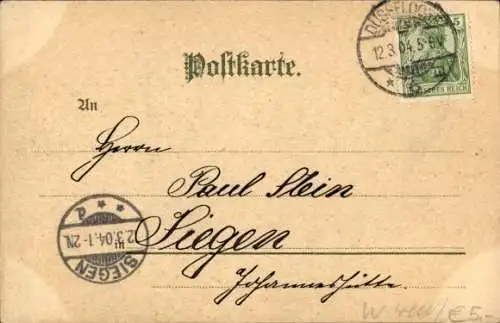 DÜSSELDORF
12.3.04.5-6N.
5
DEUTSCHES REICH
Postkarte.
An
Herrn
Paul Stein
Siegen
Johanneshütte.
SIEGEN
12.3.04.1-2N.
a
€5.-